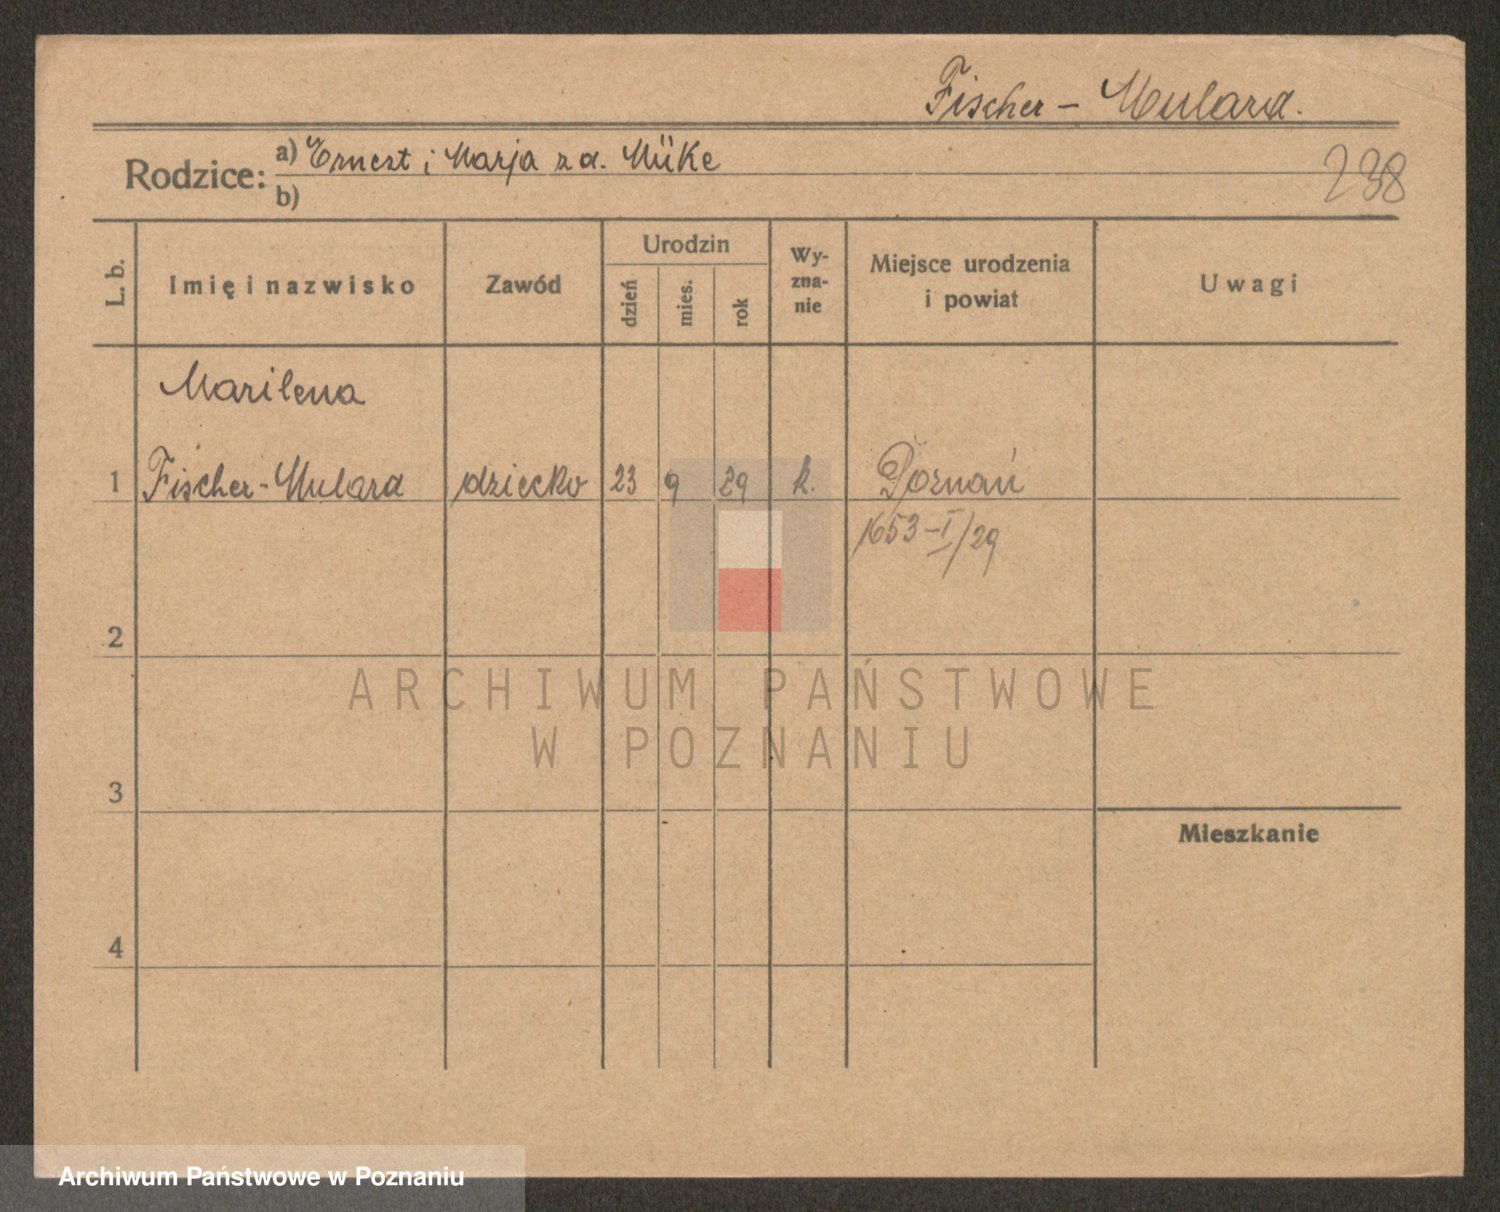 Fischer - Mulara.
Rodzice:
a) Ernest i Marja z d. Müke
b)
238
L. b.
Imię i nazwisko
Zawód
Urodzin
dzień
mies.
rok
Wy-
zna-
nie
Miejsce urodzenia
i powiat
Uwagi
Marilena
1 Fischer-Mulara dziecko 23 9 29 k. Poznań
1653-I/29
2
3
Mieszkanie
4
ARCHIWUM PAŃSTWOWE
W POZNANIU
Archiwum Państwowe w Poznaniu